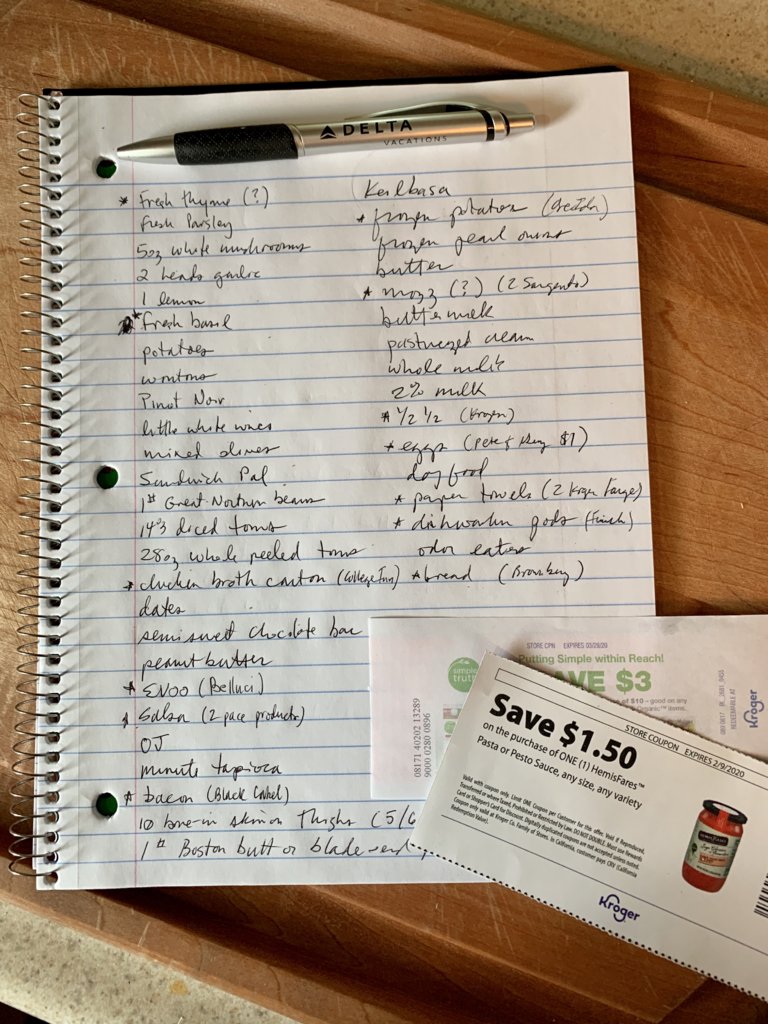 DELTA
VACATIONS
* Fresh thyme (?)
Fresh Parsley
5oz white mushrooms
2 heads garlic
1 lemon
* fresh basil
potatoes
wontons
Pinot Noir
little white wines
mixed olives
Sandwich Pal
1# Great Northern beans
14oz diced toms
28oz whole peeled toms
* chicken broth carton (College Inn)
dates
semisweet chocolate bar
peanut butter
* EVOO (Belluci)
* Salsa (2 pace products)
OJ
minute tapioca
* bacon (Black Label)
10 bone-in skin on thighs (5/6
1# Boston butt or blade end
Keilbasa
* frozen potatoes (OreIda)
frozen pearl onions
butter
* mozz (?) (2 Sargento)
buttermilk
pasturezed cream
whole milk
2% milk
* 1/2 1/2 (Kroger)
* eggs (Pete & Gerry $1)
dog food
* paper towels (2 Kroger Forge)
* dishwasher pods (Finish)
odor eaters
* bread (Brownberry)
STORE CPN EXPIRES 03/29/20
Putting Simple within Reach!
simple truth
SAVE $3
of $10 – good on any
Organic™ items.
08171 40202 13289
9000 0280 0896
REDEEMABLE AT
Kroger
STORE COUPON EXPIRES 2/9/2020
Save $1.50
on the purchase of ONE (1) HemisFares™
Pasta or Pesto Sauce, any size, any variety
Valid with coupon only. Limit ONE Coupon per Customer for this offer. Void if Reproduced,
Transferred or where Taxed, Prohibited or Restricted by Law. DO NOT DOUBLE. Must use Rewards
Card or Shopper's Card for Discount. Digitally duplicated coupons are not accepted unless noted.
Coupon only valid at Kroger Co. Family of Stores. In California, customer pays CRV (California
Redemption Value).
Kroger